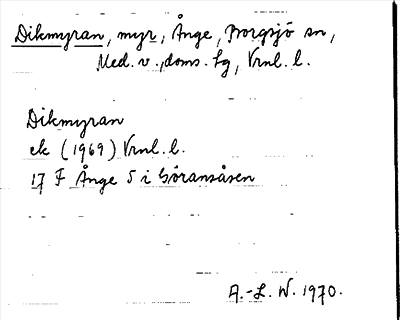 Dikmyran, myr, Ånge, Borgsjö sn,
Med. v., doms. fg, Vrnl. l.
Dikmyran
ek (1969) Vrnl. l.
17 F Ånge 5 i Göransåsen
A.-L. W. 1970.